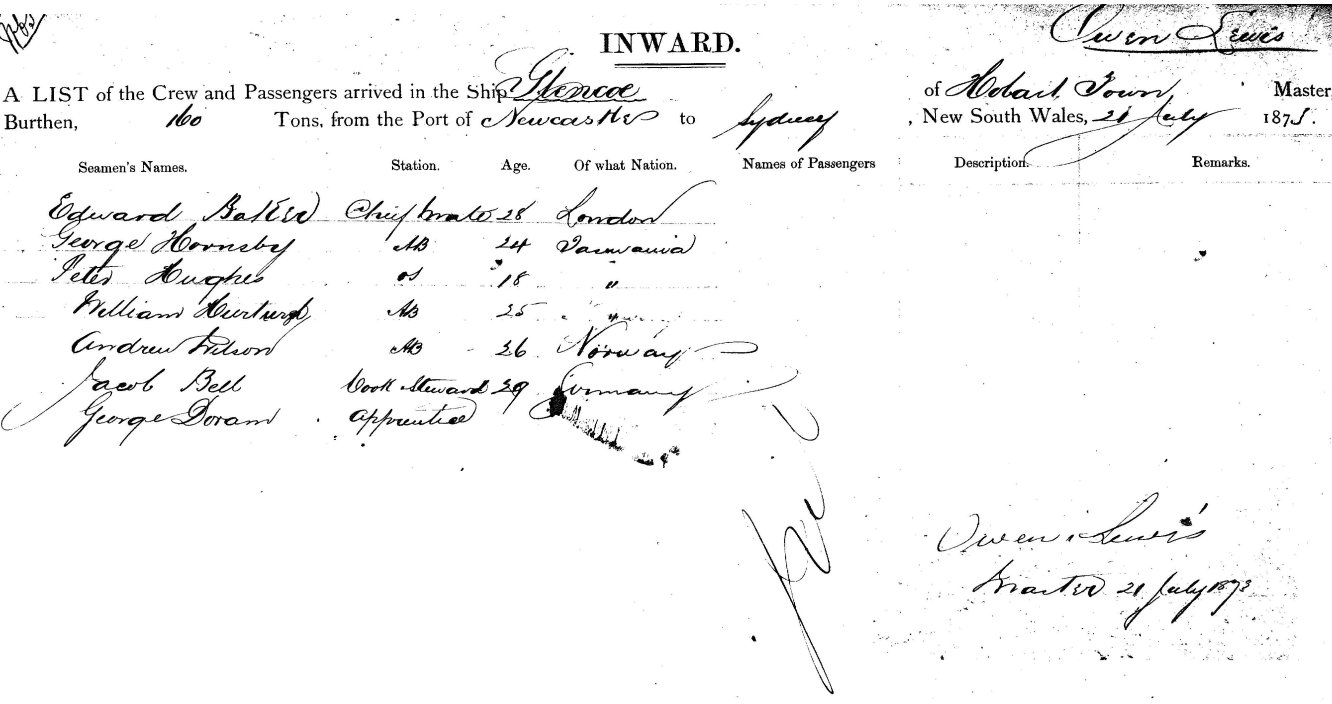 INWARD.
Owen Lewis
A LIST of the Crew and Passengers arrived in the Ship Glencoe of Hobart Town, Master
Burthen, 160 Tons, from the Port of Newcastle to Sydney, New South Wales, 21 July 1873.
Seamen's Names. Station. Age. Of what Nation. Names of Passengers Description. Remarks.
Edward Baker Chief Mate 28 London
George Hornsby AB 24 Tasmania
Peter Hughes OS 18 "
William AB 25 "
Andrew Wilson AB 26 Norway
Jacob Bell Cook Steward 29 Germany
George Doram Apprentice
Owen Lewis
Master 21 July 1873